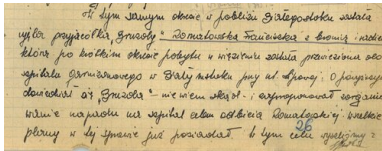 W tym samym okresie w pobliżu Białegostoku została
ujęta przyjaciółka "Gruzoły" - Romatowska Franciszka z bronią i
która po krótkim okresie pobytu w więzieniu została przewieziona do
szpitala garnizonowego w Białymstoku przy ul. O powyższym
dowiedział się "Gruzoła" - nie wiem skąd - i zaproponował zorgani
zowanie napadu na szpital celem odbicia Romatowskiej. Wszelkie
plany w tej sprawie już posiadał. W tym celu
26